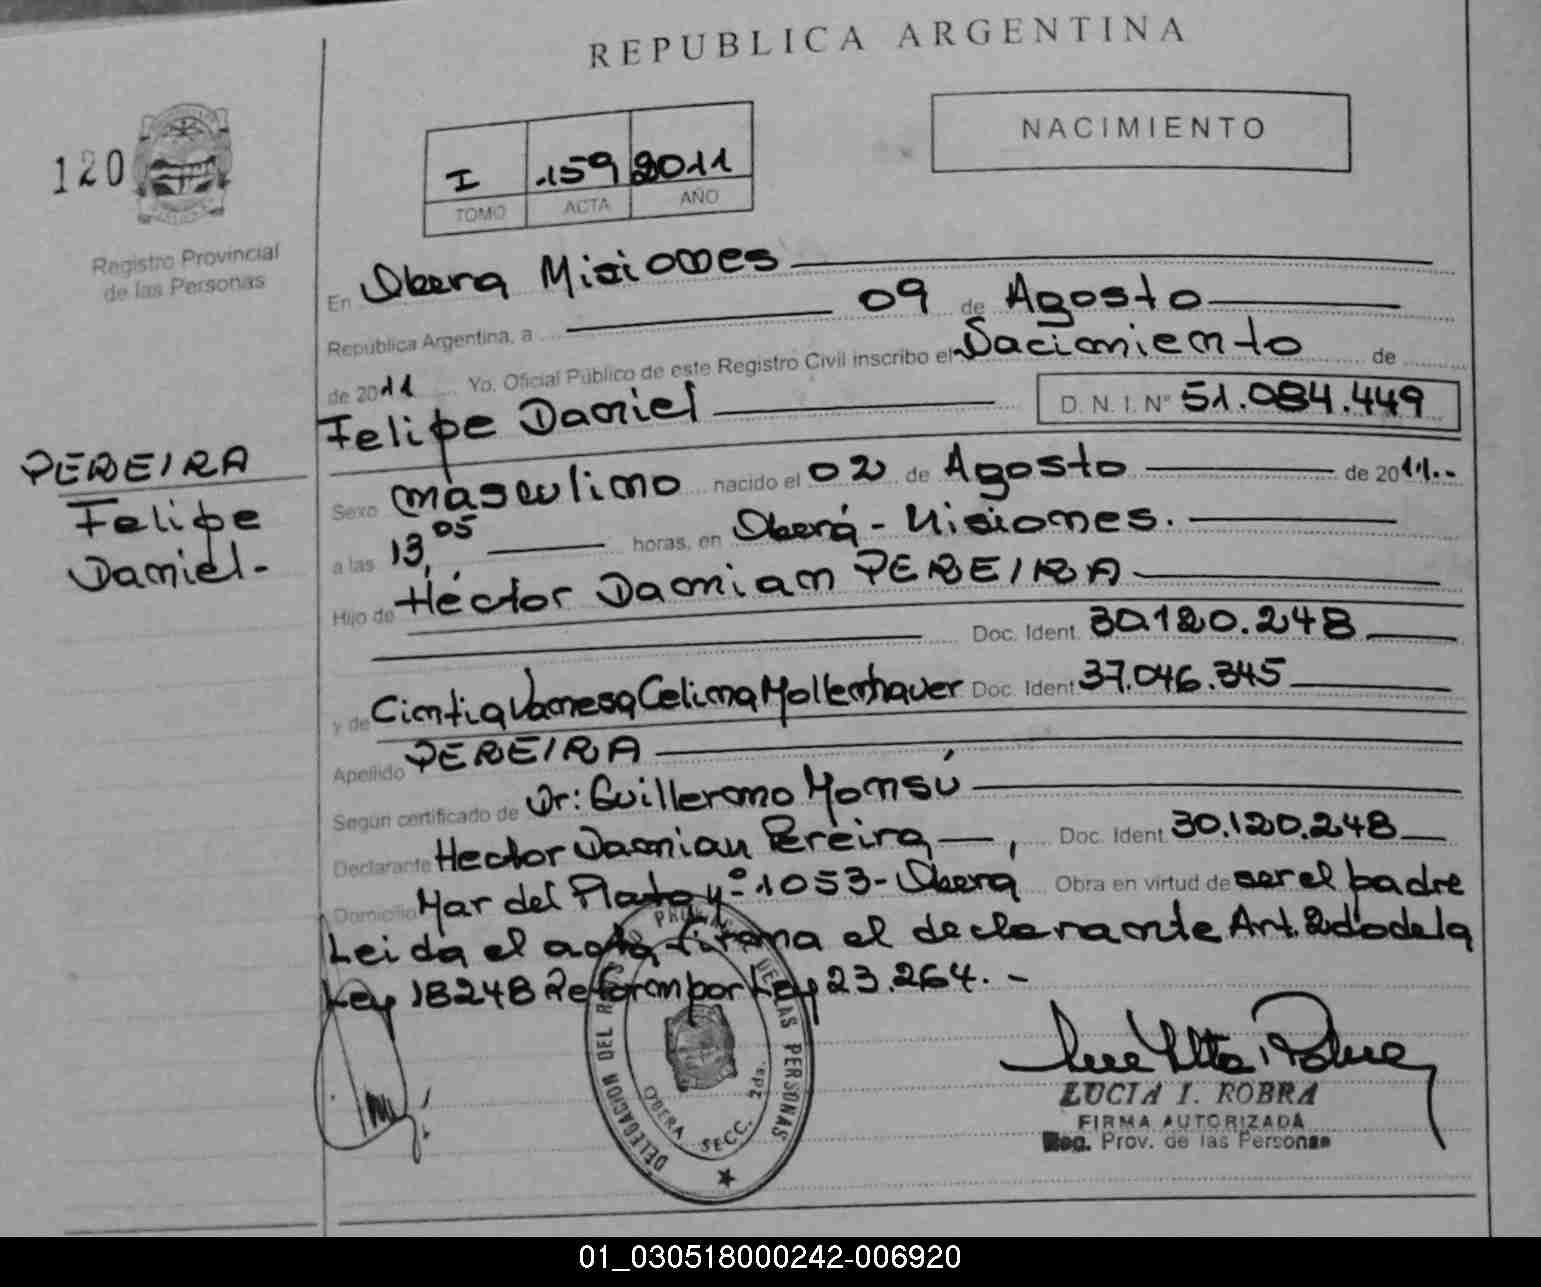 REPUBLICA ARGENTINA
120
Registro Provincial
de las Personas
I 159 2011
TOMO ACTA AÑO
NACIMIENTO
En Obera Misiones
República Argentina, a 09 de Agosto
de 2011 Yo, Oficial Público de este Registro Civil inscribo el Nacimiento de
Felipe Daniel D. N. I. Nº 51.084.449
PEREIRA
Felipe
Daniel.-
Sexo masculino nacido el 02 de Agosto de 2011.-
a las 13,05 horas, en Oberá - Misiones.
Hijo de Héctor Damian PEREIRA
Doc. Ident. 30.120.248
y de Cintia Vanesa Celina Mollenhauer Doc. Ident. 37.046.345
Apellido PEREIRA
Según certificado de Dr: Guillermo Monsú
Declarante Hector Damian Pereira, Doc. Ident. 30.120.248
Domicilio Mar del Plata Nº 1053 - Oberá Obra en virtud de ser el padre
Leida el acta firma el declarante Art. 2do de la
Ley 18248 Reform por Ley 23.264.-
DELEGACION DEL REG PROV DE LAS PERSONAS
OBERA SECC. 2da.
LUCIA I. ROBRA
FIRMA AUTORIZADA
Reg. Prov. de las Personas
01_030518000242-006920